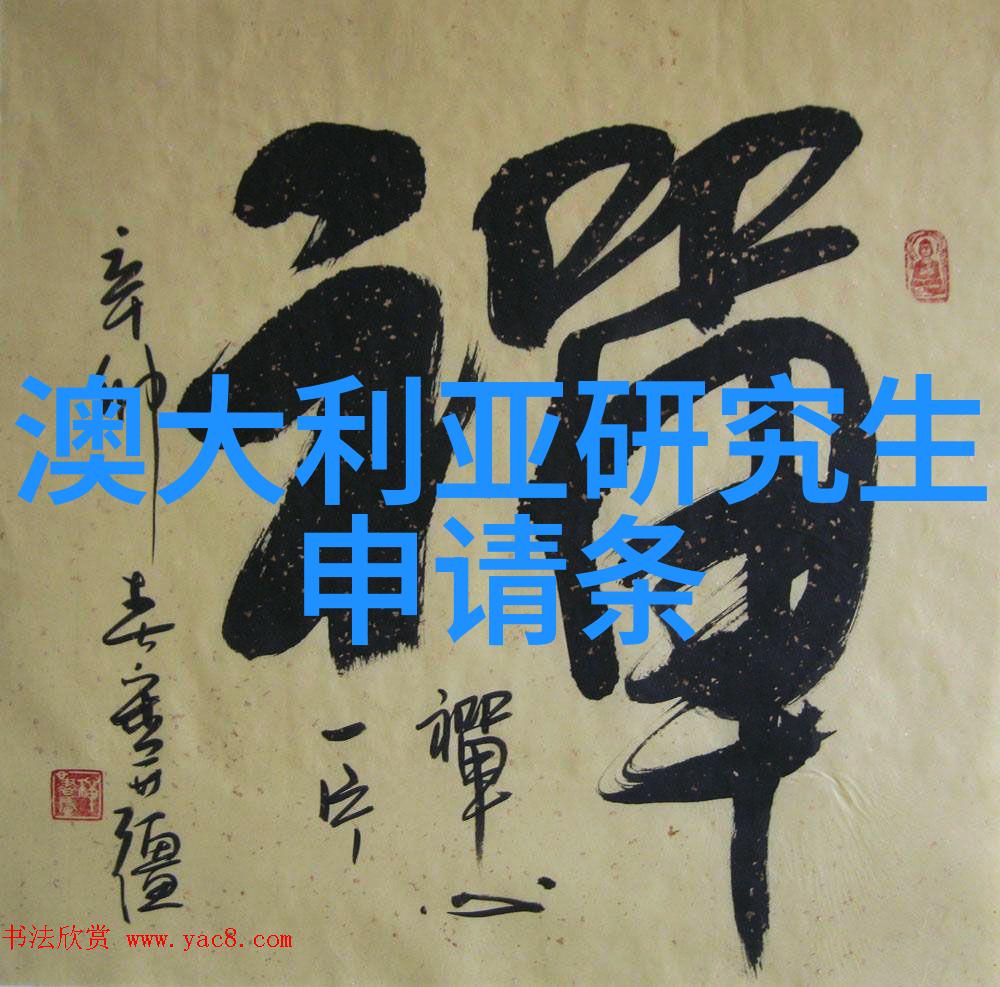 禪
澳大利亚研究生
申请条
禪心
一片
辛卯春
书法欣赏 www.yac8.com